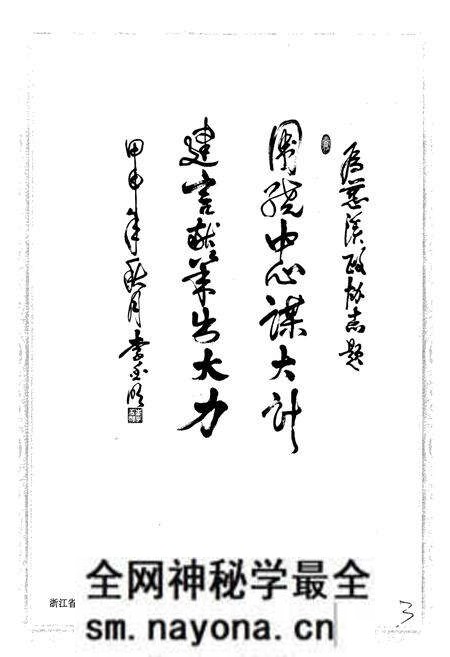 为慈溪政协志题
围绕中心谋大计
建言献策出大力
甲申年秋月李金明
浙江省
全网神秘学最全
sm.nayona.cn
3